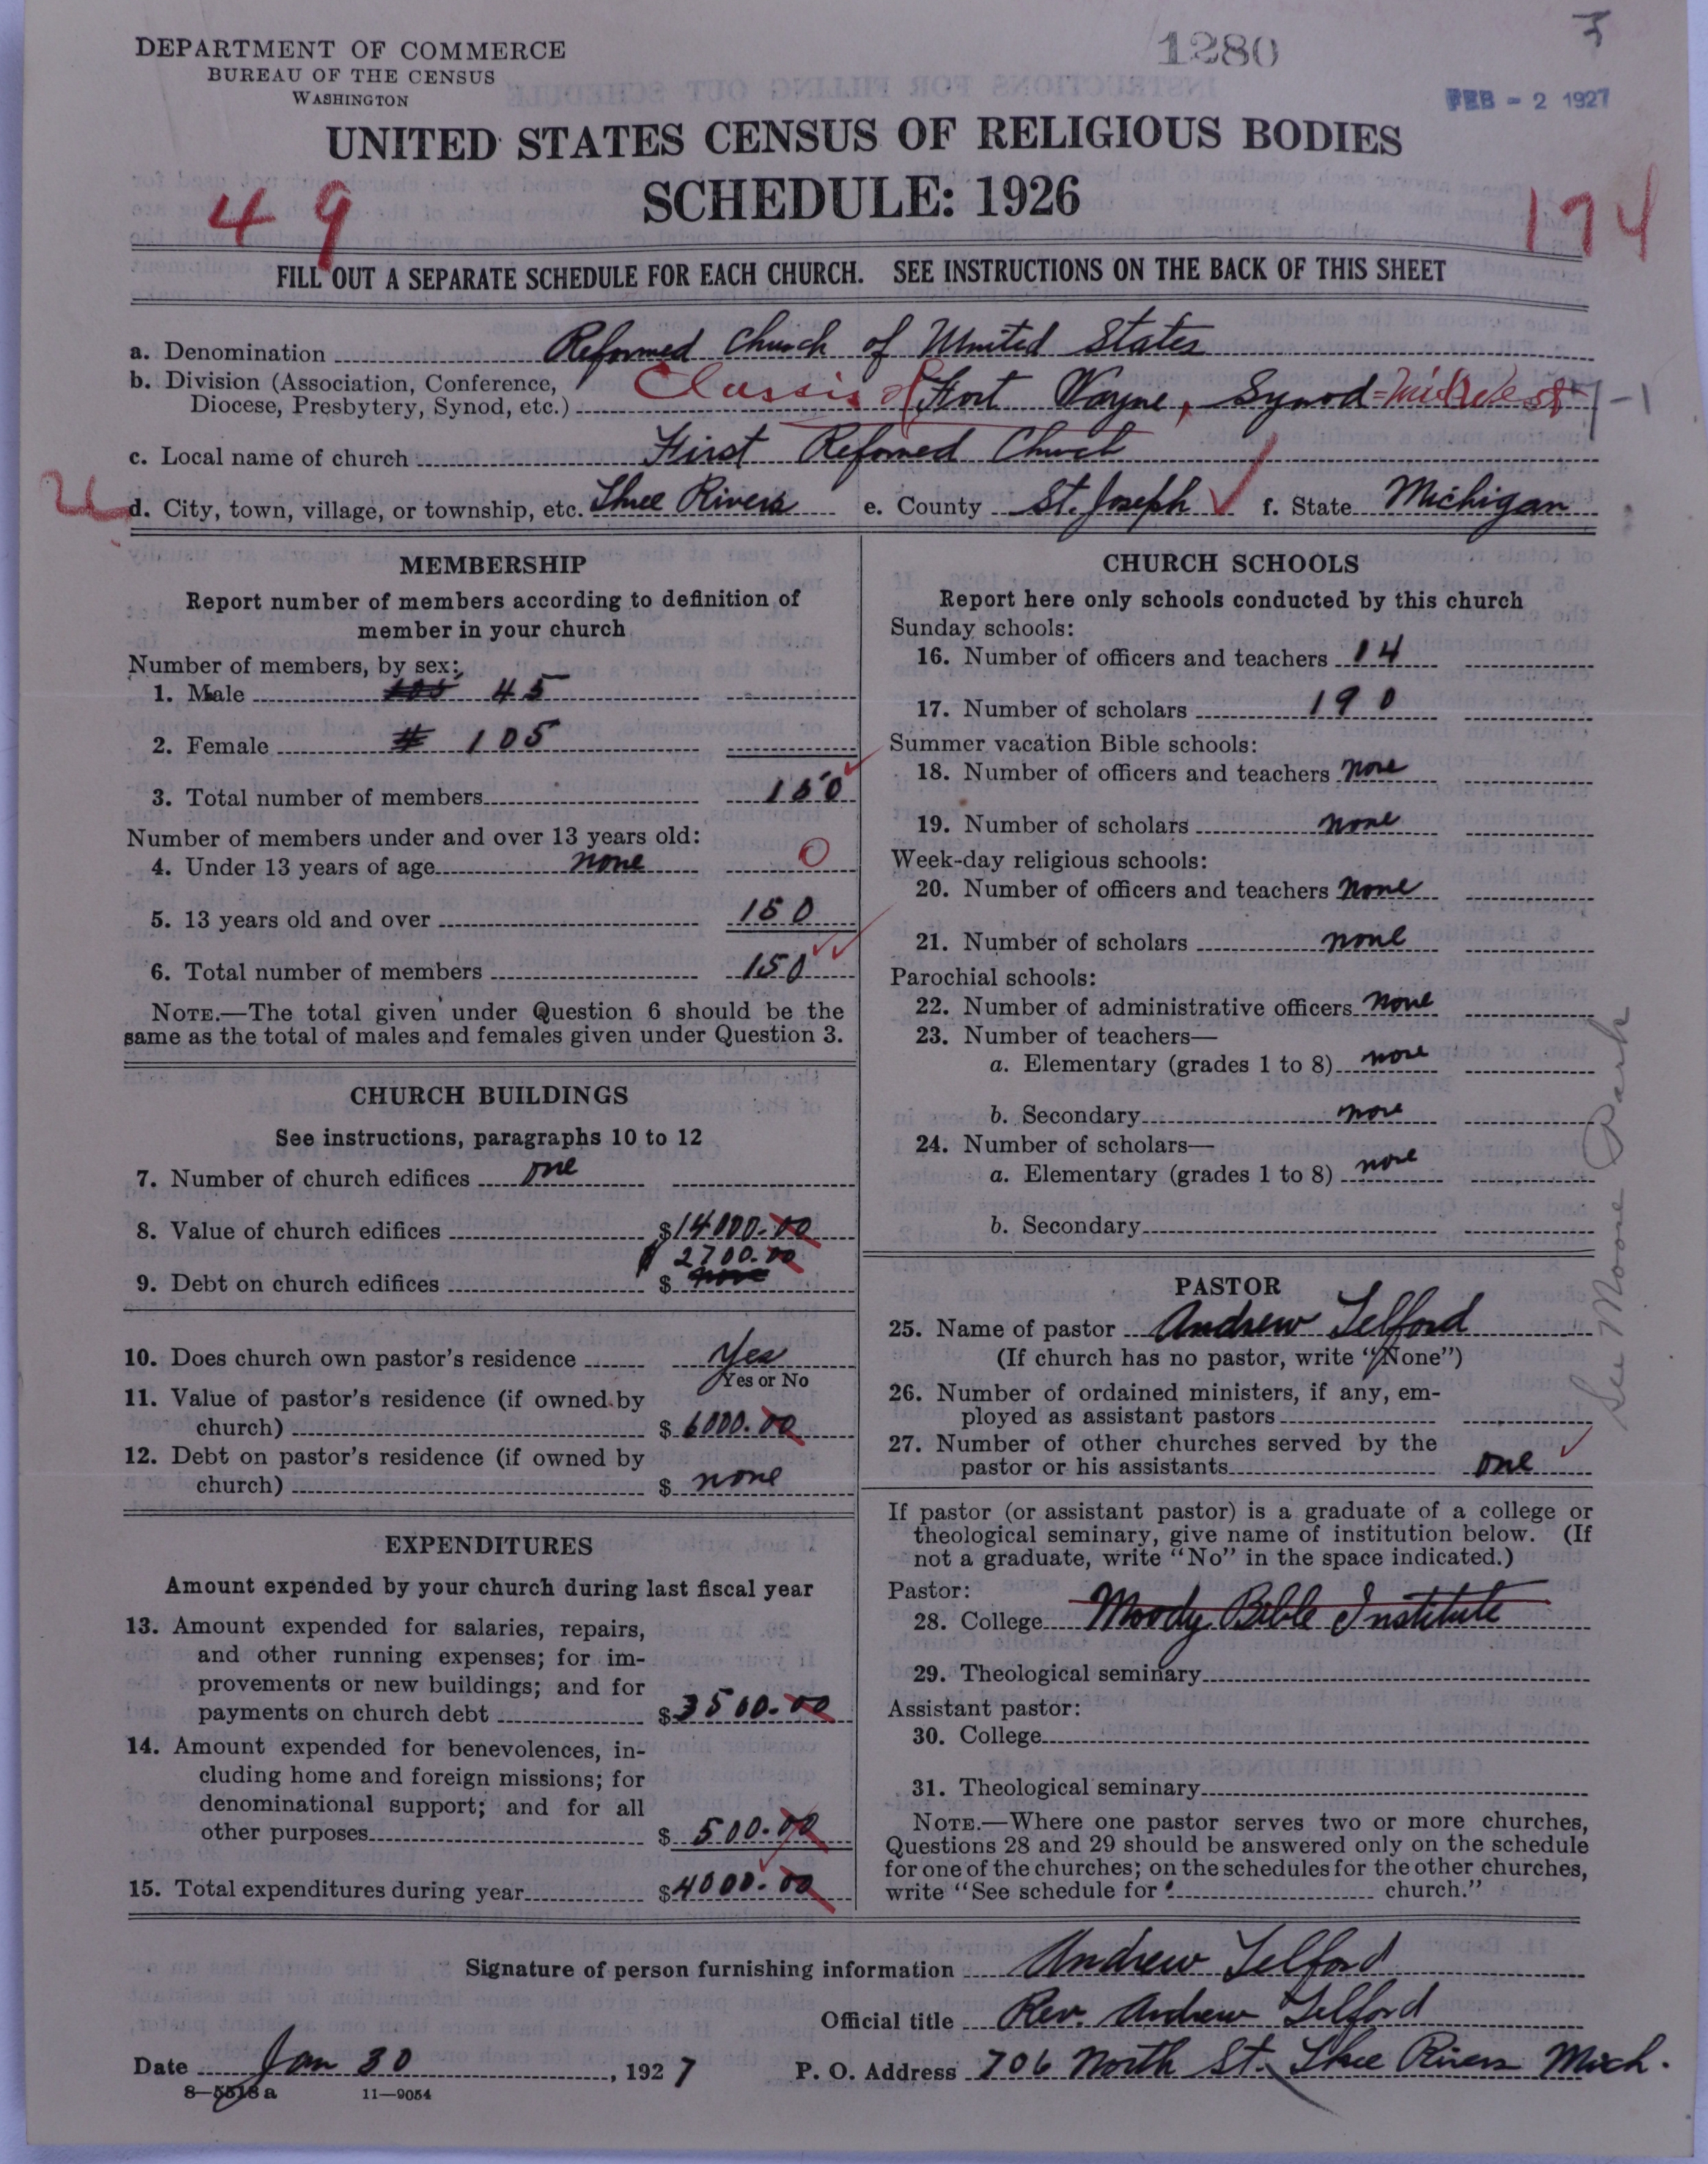 DEPARTMENT OF COMMERCE
BUREAU OF THE CENSUS
WASHINGTON
1280
FEB - 2 1927
UNITED STATES CENSUS OF RELIGIOUS BODIES
SCHEDULE: 1926
49
174
FILL OUT A SEPARATE SCHEDULE FOR EACH CHURCH. SEE INSTRUCTIONS ON THE BACK OF THIS SHEET
a. Denomination Reformed Church of United States
b. Division (Association, Conference, Diocese, Presbytery, Synod, etc.) Classis of Fort Wayne, Synod=Midwest 7-1
c. Local name of church First Reformed Church
d. City, town, village, or township, etc. Three Rivers e. County St. Joseph f. State Michigan
MEMBERSHIP
Report number of members according to definition of
member in your church
Number of members, by sex:
1. Male 45
2. Female 105
3. Total number of members 150
Number of members under and over 13 years old:
4. Under 13 years of age none 0
5. 13 years old and over 150
6. Total number of members 150
NOTE.—The total given under Question 6 should be the
same as the total of males and females given under Question 3.
CHURCH BUILDINGS
See instructions, paragraphs 10 to 12
7. Number of church edifices one
8. Value of church edifices $14000.00
$2700.00
9. Debt on church edifices $ none
10. Does church own pastor's residence Yes
Yes or No
11. Value of pastor's residence (if owned by
church) $ 6000.00
12. Debt on pastor's residence (if owned by
church) $ none
EXPENDITURES
Amount expended by your church during last fiscal year
13. Amount expended for salaries, repairs,
and other running expenses; for im-
provements or new buildings; and for
payments on church debt $3500.00
14. Amount expended for benevolences, in-
cluding home and foreign missions; for
denominational support; and for all
other purposes $ 500.00
15. Total expenditures during year $4000.00
CHURCH SCHOOLS
Report here only schools conducted by this church
Sunday schools:
16. Number of officers and teachers 14
17. Number of scholars 190
Summer vacation Bible schools:
18. Number of officers and teachers none
19. Number of scholars none
Week-day religious schools:
20. Number of officers and teachers none
21. Number of scholars none
Parochial schools:
22. Number of administrative officers none
23. Number of teachers—
a. Elementary (grades 1 to 8) none
b. Secondary none
24. Number of scholars—
a. Elementary (grades 1 to 8) none
b. Secondary
See Moore Park
PASTOR
25. Name of pastor Andrew Telford
(If church has no pastor, write "None")
26. Number of ordained ministers, if any, em-
ployed as assistant pastors
27. Number of other churches served by the
pastor or his assistants one
If pastor (or assistant pastor) is a graduate of a college or
theological seminary, give name of institution below. (If
not a graduate, write "No" in the space indicated.)
Pastor:
28. College Moody Bible Institute
29. Theological seminary
Assistant pastor:
30. College
31. Theological seminary
NOTE.—Where one pastor serves two or more churches,
Questions 28 and 29 should be answered only on the schedule
for one of the churches; on the schedules for the other churches,
write "See schedule for church."
Signature of person furnishing information Andrew Telford
Official title Rev. Andrew Telford
Date Jan 30, 1927 P. O. Address 706 North St. Three Rivers Mich.
8—5518a 11—9054